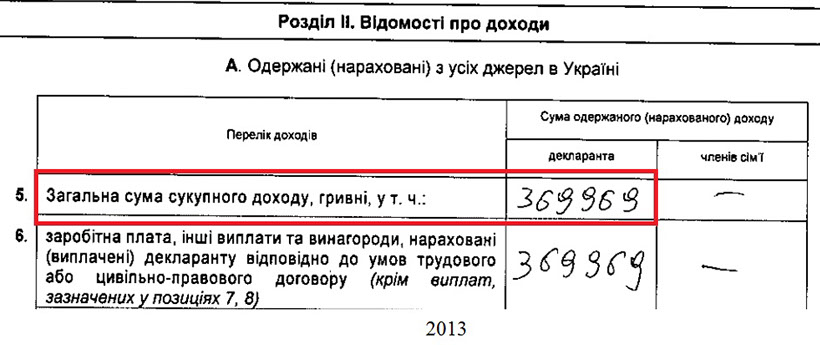 Розділ II. Відомості про доходи
А. Одержані (нараховані) з усіх джерел в Україні
Перелік доходів
Сума одержаного (нарахованого) доходу
декларанта
членів сім'ї
5. Загальна сума сукупного доходу, гривні, у т. ч.: 369969 —
6. заробітна плата, інші виплати та винагороди, нараховані
(виплачені) декларанту відповідно до умов трудового
або цивільно-правового договору (крім виплат,
зазначених у позиціях 7, 8)
369969 —
2013